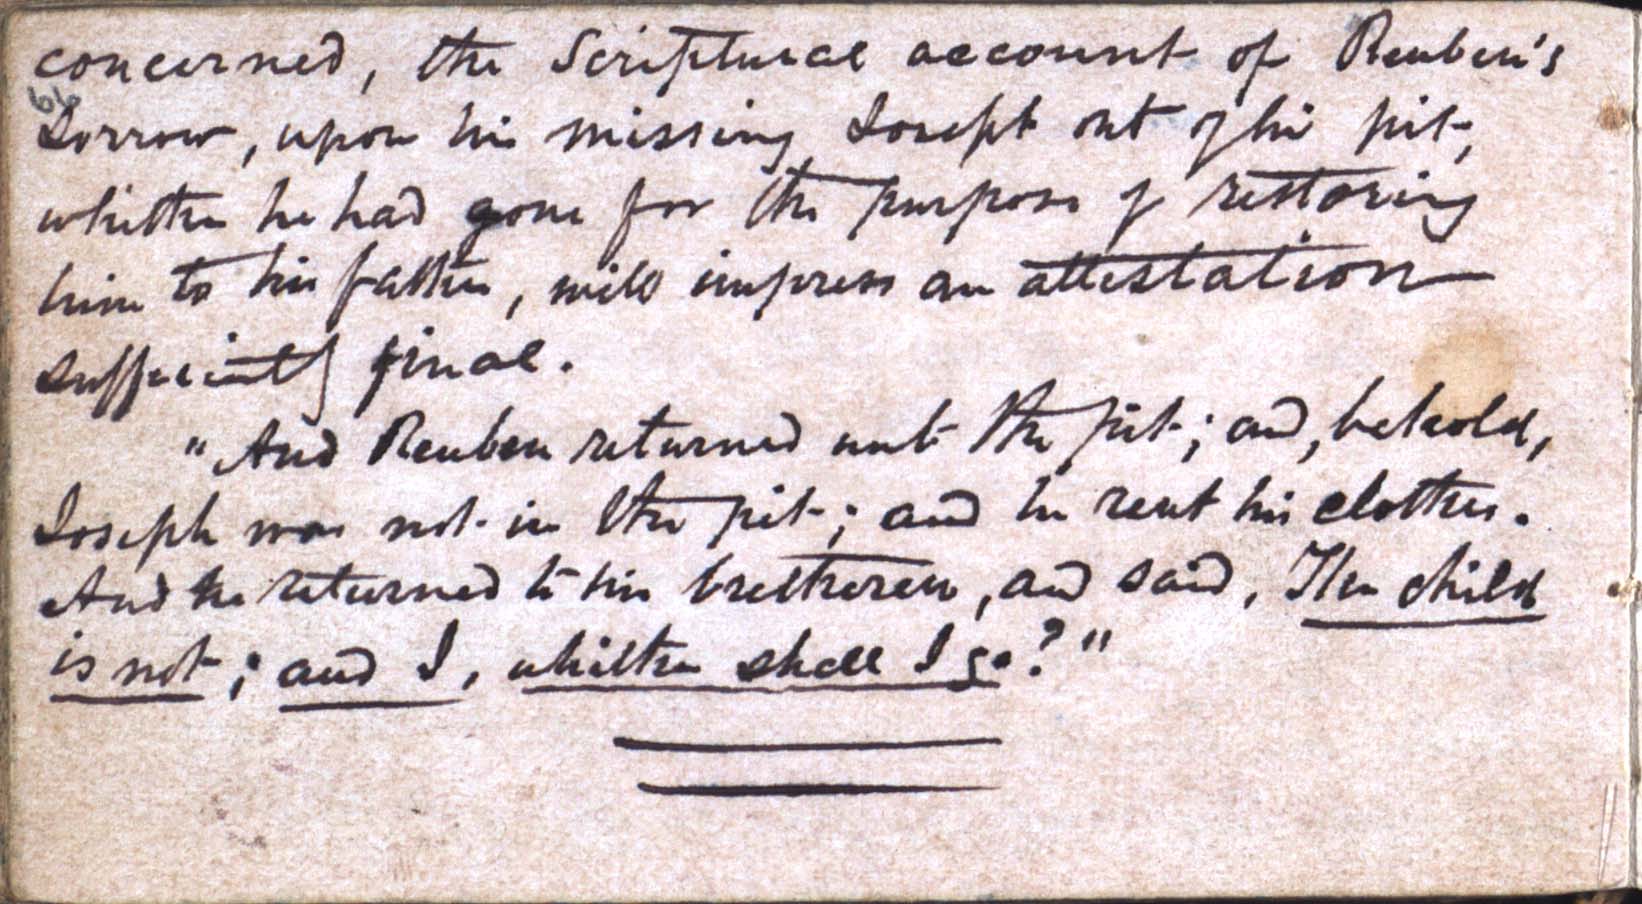 concerned, the Scriptural account of Reuben's
66
sorrow, upon his missing Joseph out of his pit,
whither he had gone for the purpose of restoring
him to his father, will impress an attestation
sufficiently final.
"And Reuben returned unto the pit; and, behold,
Joseph was not in the pit; and he rent his clothes.
And he returned to his bretheren, and said, The child
is not; and I, whither shall I go?"